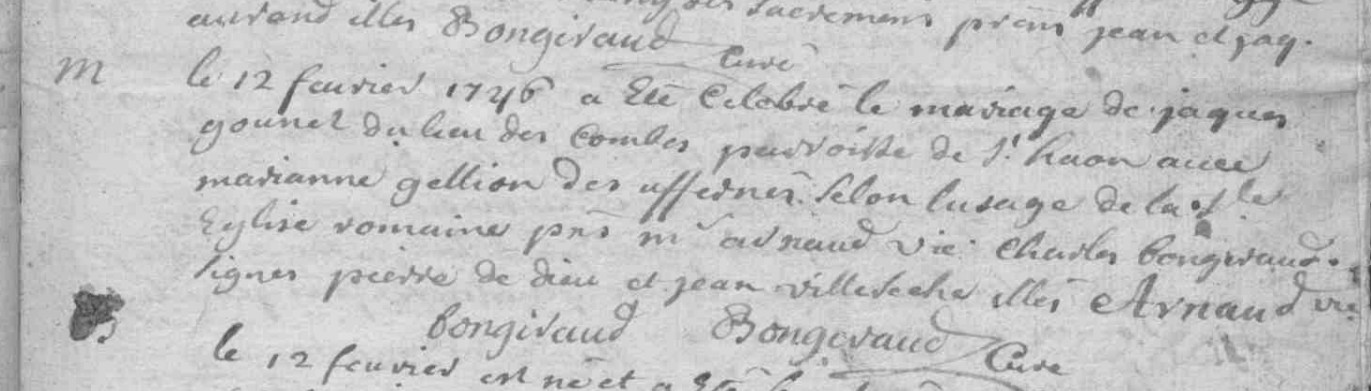 sacremens prêns jean et jaq.
aurand illes Bongiraud Curé
m le 12 feurier 1746 a Eté Celebré le mariage de jaques
gounet du lieu des Combes parroisse de st. haon auec
marianne gellion des uffernes. Selon lusage de la ste
Eglise romaine pñs mr arnaud vic. Charles bongiraud.
signes pierre de dieu et jean villeseche illés Arnaud vic.
bongiraud Bongiraud Curé
le 12 feurier est né et a Eté